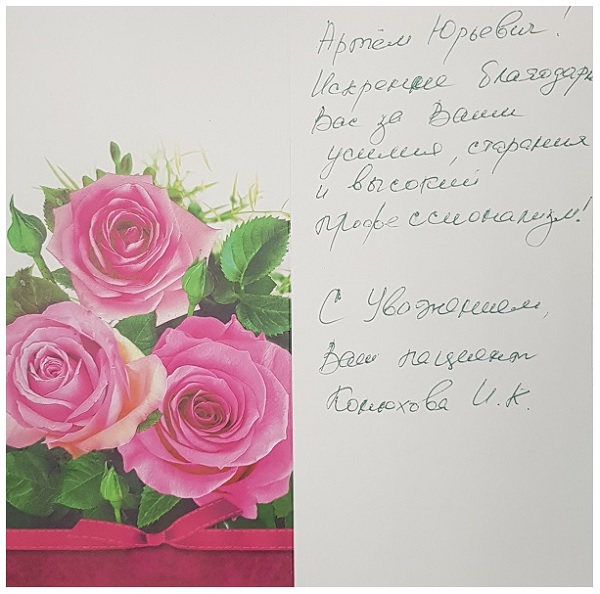 Артём Юрьевич!
Искренне благодарю
Вас за Ваши
усилия, старания
и высокий
профессионализм!
С Уважением,
Ваш пациент
Конюхова И. К.